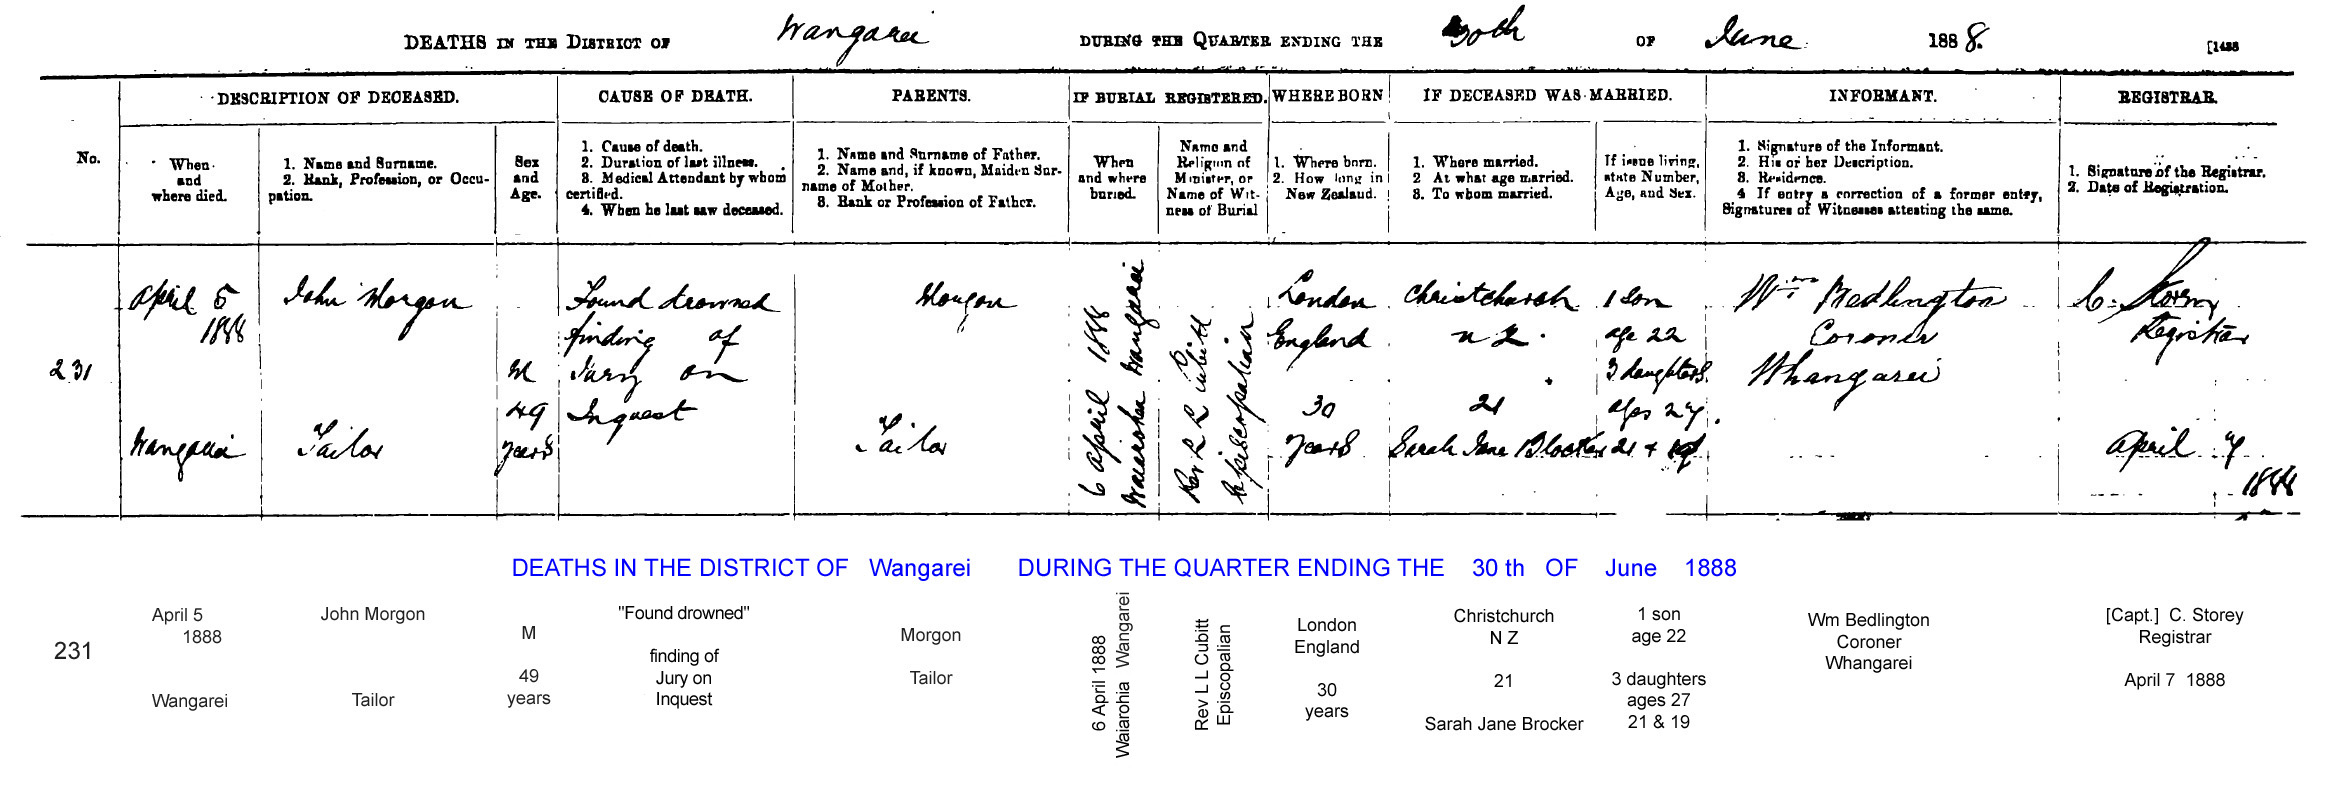 DEATHS IN THE DISTRICT OF Wangarei DURING THE QUARTER ENDING THE 30th OF June 1888. [1488
No.
DESCRIPTION OF DECEASED.
CAUSE OF DEATH.
PARENTS.
IF BURIAL REGISTERED.
WHERE BORN
IF DECEASED WAS MARRIED.
INFORMANT.
REGISTRAR.
When
and
where died.
1. Name and Surname.
2. Rank, Profession, or Occu-
pation.
Sex
and
Age.
1. Cause of death.
2. Duration of last illness.
3. Medical Attendant by whom
certified.
4. When he last saw deceased.
1. Name and Surname of Father.
2. Name and, if known, Maiden Sur-
name of Mother.
3. Rank or Profession of Father.
When
and where
buried.
Name and
Religion of
Minister, or
Name of Wit-
ness of Burial
1. Where born.
2. How long in
New Zealand.
1. Where married.
2 At what age married.
3. To whom married.
If issue living,
state Number,
Age, and Sex.
1. Signature of the Informant.
2. His or her Description.
3. Residence.
4 If entry a correction of a former entry,
Signatures of Witnesses attesting the same.
1. Signature of the Registrar.
2. Date of Registration.
231
April 5
1888
Wangarei
John Morgon
Tailor
M
49
years
Found drowned
finding of
Jury on
Inquest
Morgon
Tailor
6 April 1888
Waiarohia Wangarei
Rev L L Cubitt
Episcopalian
London
England
30
years
Christchurch
N Z.
21
Sarah Jane Brocker
1 son
age 22
3 daughters
ages 27
21 + 19
Wm Bedlington
Coroner
Whangarei
C. Storey
Registrar
April 7
1888
DEATHS IN THE DISTRICT OF Wangarei DURING THE QUARTER ENDING THE 30 th OF June 1888
231
April 5
1888
Wangarei
John Morgon
Tailor
M
49
years
"Found drowned"
finding of
Jury on
Inquest
Morgon
Tailor
6 April 1888
Waiarohia Wangarei
Rev L L Cubitt
Episcopalian
London
England
30
years
Christchurch
N Z
21
Sarah Jane Brocker
1 son
age 22
3 daughters
ages 27
21 & 19
Wm Bedlington
Coroner
Whangarei
[Capt.] C. Storey
Registrar
April 7 1888